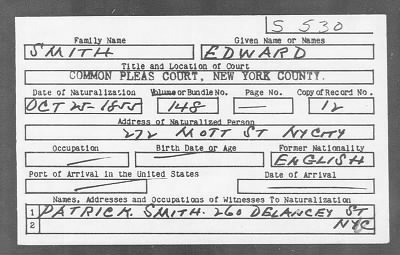 S 530
Family Name Given Name or Names
SMITH EDWARD
Title and Location of Court
COMMON PLEAS COURT, NEW YORK COUNTY.
Date of Naturalization Volume or Bundle No. Page No. Copy of Record No.
OCT 25-1855 148 — 12
Address of Naturalized Person
272 MOTT ST NYCITY
Occupation Birth Date or Age Former Nationality
— — ENGLISH
Port of Arrival in the United States Date of Arrival
— —
Names, Addresses and Occupations of Witnesses To Naturalization
1 PATRICK. SMITH. 260 DELANCEY ST
2 NYC